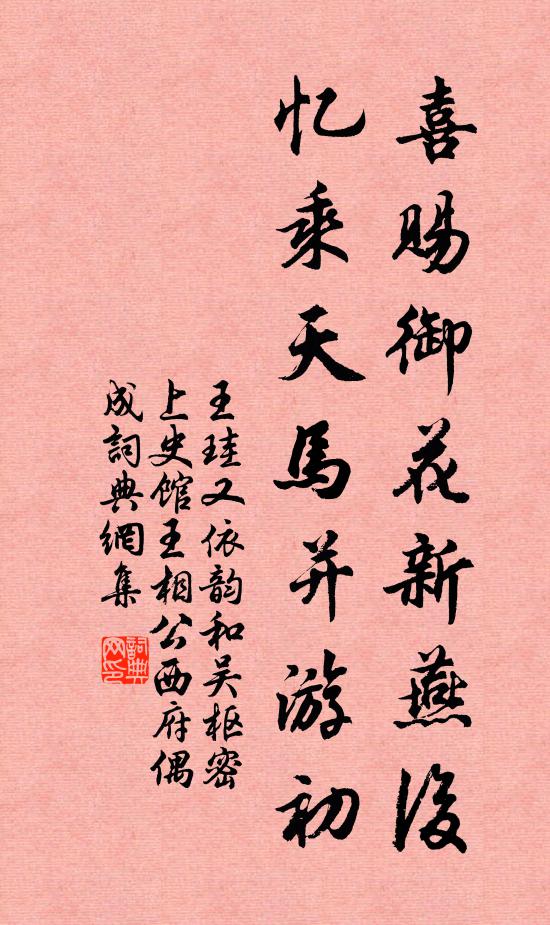 喜賜御花新燕後
忆乘天馬并游初
王珪又依韵和吴枢密
上史馆王相公西府偶
成詞典網集
詞典
网印